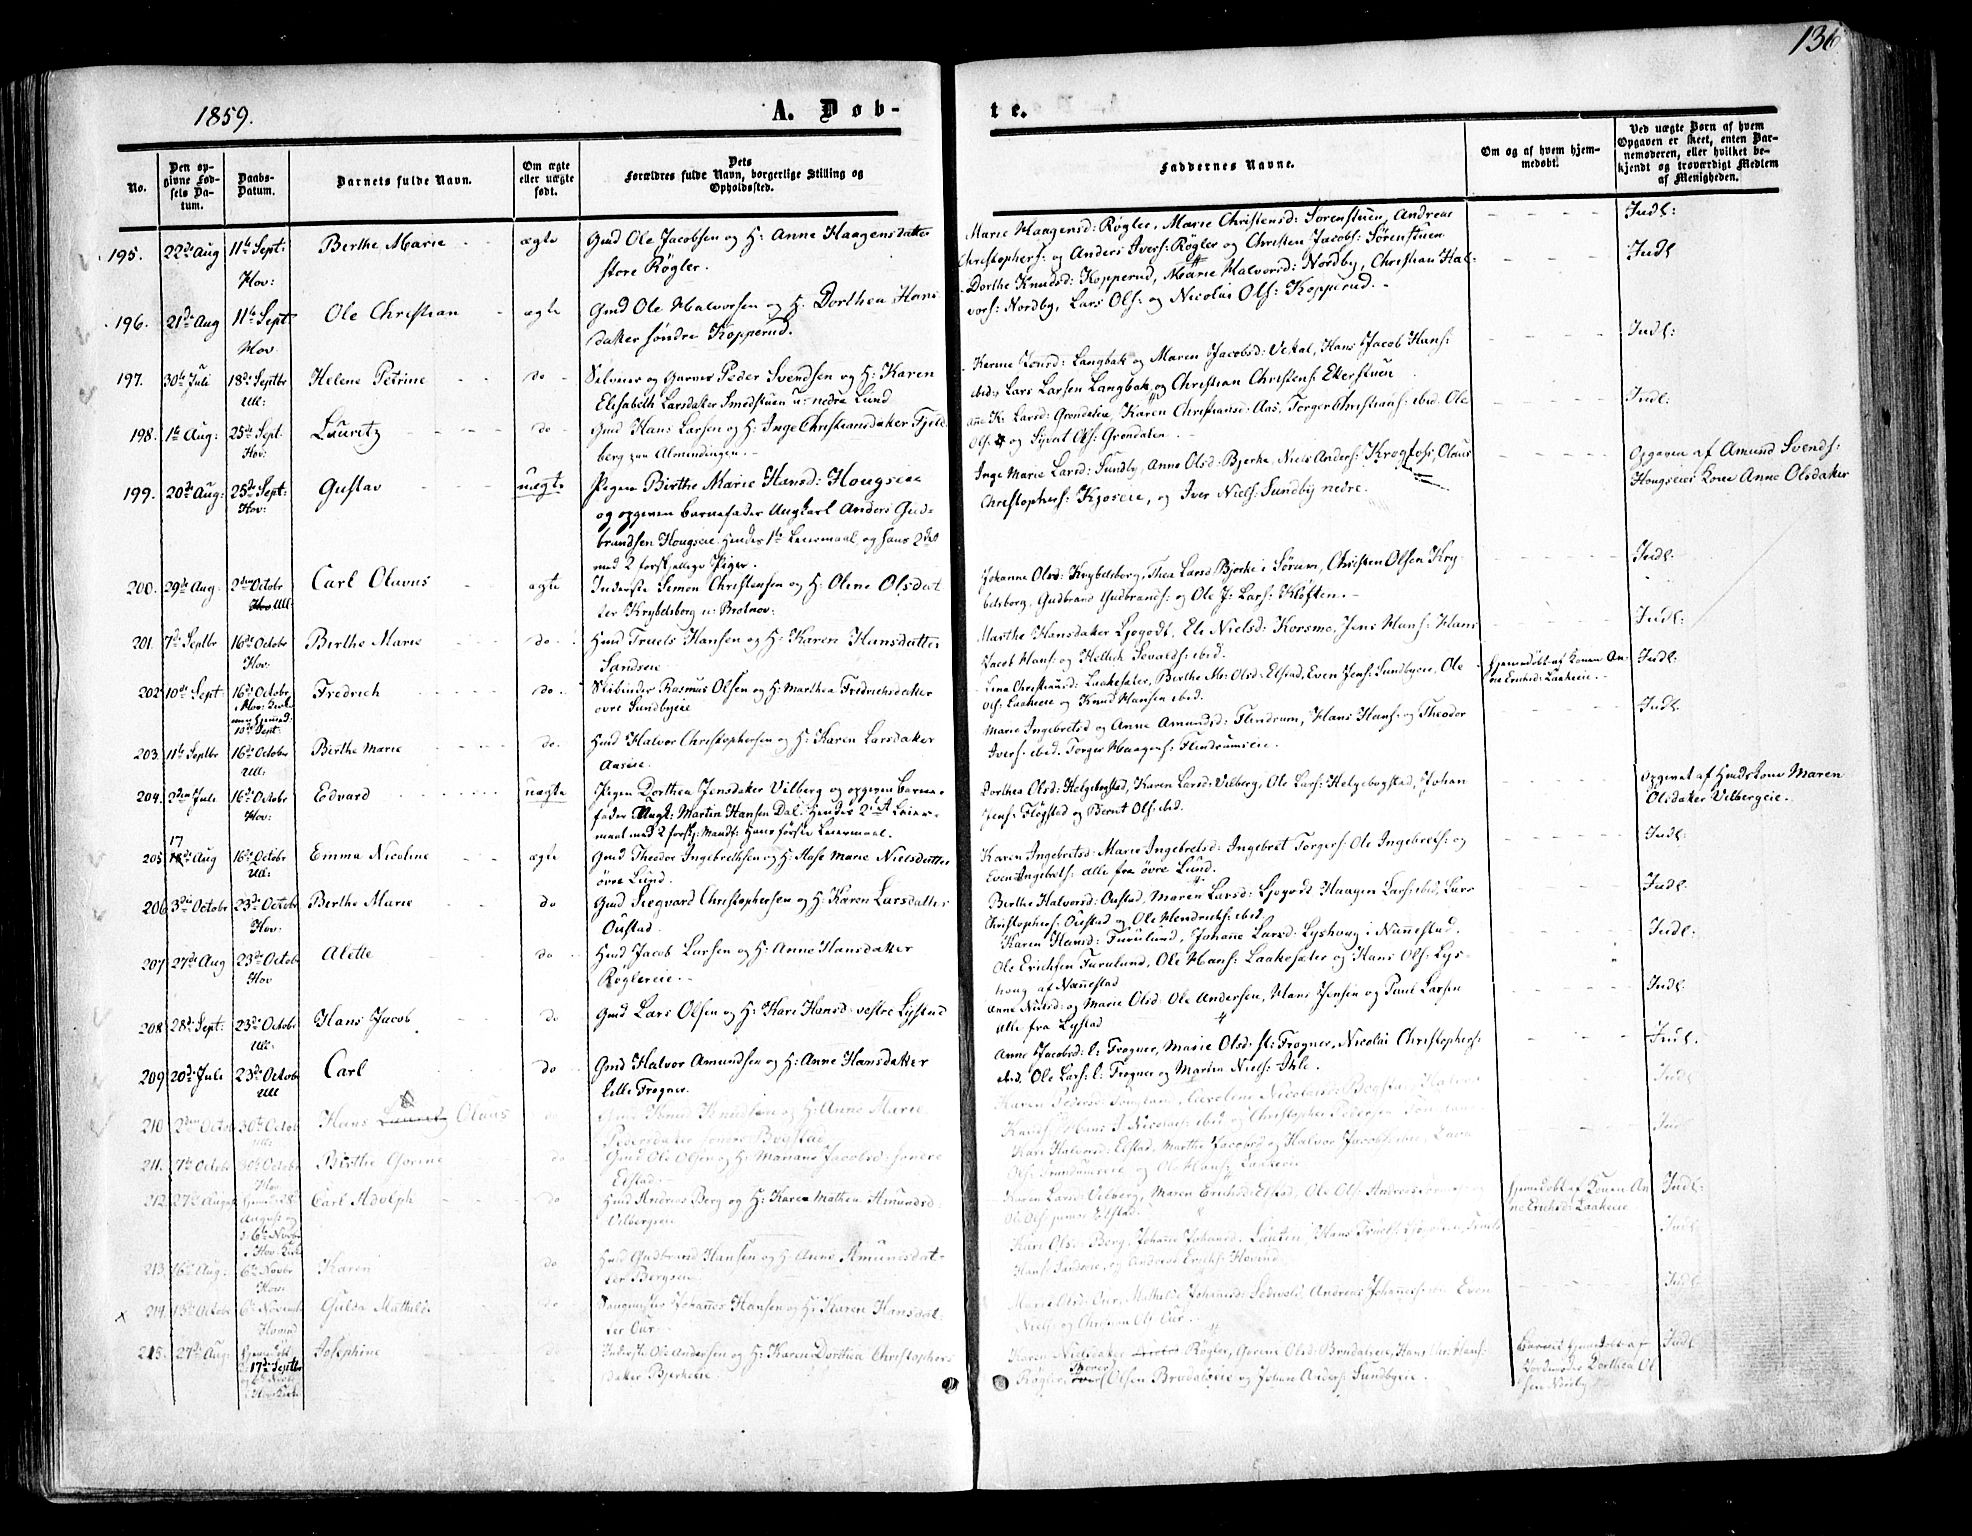 136
1859.
A. Døb-
te.
No.
Den op-
givne Fød-
sels Da-
tum.
Daabs-
Datum.
Barnets fulde Navn.
Om ægte
eller uægte
født.
Dets
Forældres fulde Navn, borgerlige Stilling og
Opholdssted.
Faddernes Navne.
Om og af hvem hjem-
medøbt.
Ved uægte Børn af hvem
Opgaven er skeet, enten Bar-
nemoderen, eller hvilket be-
kjendt og troværdigt Medlem
af Menigheden.
195. 22de Aug 11te Sept: Hov: Birthe Marie ægte Gmd Ole Jacobsen og H: Anne Haagensdatter
store Røgler.
Marie Haagensd: Røgler, Marie Christensd: Sørenstuen, Andreas
Christophers: og Anders Ivers: Røgler og Christen Jacobs: Sørenstuen
Indl:
196. 21de Aug 11te Sept Hov Ole Christian ægte Gmd Ole Halvorsen og H. Dorthea Hans
datter søndre Kopperud.
Dorthe Knudsd: Kopperud, Marie Halvorsd: Nordby, Christian Hal-
vors: Nordby, Lars Ols: og Nicolai Ols: Kopperud.
Indl
197. 30te Juli 18de Septbr Ull: Helene Petrine do Selveier og Garver Peder Svendsen og H: Karen
Elisabeth Larsdatter Smedstuen u: nedre Lund
Langbak og Maren Jacobsd: Hans Jacob Hans:
ibid, Lars Larsen Langbak og Christian Christens: Ekerstuen
Indl:
198. 1te Aug: 25de Sept. Hov: Lauritz do Gmd Hans Larsen og H: Inge Christiansdatter Fjeld
berg paa Almindingen.
Larsd: Grøndalen, Karen Christiansd: Aas, Torger Christians: ibid. Ole
Ols: og Syvert Ols: Grøndalen.
Indl:
199. 20de Aug: 25de Sept: Hov: Gustav uægte Pigen Birthe Marie Hansd: Hougseie
og opgiven Barnefader Ungkarl Anders Gud-
brandsen Hougseie. Hendes 1te Leiermaal og hans 2det
med 2 forskjellige Piger.
Inge Marie Larsd: Sundby, Anne Olsd: Bjerke, Niels Anders: Krogfoss, Olaus
Christophers: Kjoseie, og Iver Niels: Sundby nedre.
Opgiven af Amund Svends:
Hougseies Kone Anne Olsdatter
200. 29de Aug 2den Octobr Ull: Carl Olavus ægte Inderste Simon Christensen og H: Oline Olsdat
ter Krybelsborg u: Brotnov:
Johanne Olsd: Krybelsborg, Thea Larsd Bjerke i Sørum, Christen Olsen Kry-
belsborg, Gudbrand Gudbrands: og Ole J: Lars: Kløften.
Indl:
201. 7de Septbr 16de Octobr Hov: Birthe Marie do Hmd Truels Hansen og H: Karen Hansdatter
Sandseie
Marthe Hansdatter Ljogodt, Eli Nielsd: Korsmo, Jens Hans: Hans
Jacob Hans: og Hellik Sevalds: ibid:
Indl:
202 10de Sept 16de Octobr Fredrich do Skibinder Rasmus Olsen og H: Marthea Fredrichsdatter
øvre Sundbyeie
Lina Christiansd: Laakesæter, Birthe Olsd: Elstad, Even Jens: Sundbyeie, Ole
Ols: Laakeeie og Knud Hansen ibid.
Hjemmedøbt af Konen An-
ne Erichsd: Laakeeie.
Indl:
203. 11te Septbr 16de Octobr Ull: Birthe Marie do. Hmd Halvor Christophersen og H: Karen Larsdatter
Aaseie.
Marie Ingebretsd og Anne Amundsd: Flindrum, Hans Hans: og Theodor
Ivers: ibid. Torger Haagens: Flindrumseie.
Indl:
204. 2den Juli 16de Octobr Hov: Edvard uægte Pigen Dorthea Jensdatter Vilberg og opgiven Barne-
fader Ungk: Martin Hansen Dal. Hendes 2det Leier-
maal med 2 forskj: Mandf: Hans første Leiermaal.
Dorthea Olsd: Helgebostad, Karen Larsd: Vilberg, Ole Lars: Helgebostad, Johan
Jens: Fløgstad og Bernt Ols: ibid.
Opgivet af Hmds Kone Maren
Olsdatter Vilbergeie.
205 17 Aug 16de Octobr Ull: Emma Nicoline ægte Gmd Theodor Ingebrethsen og H: Hase Marie Nielsdatter
øvre Lund.
Karen Ingebretsd: Marie Ingebretsd: Ingebret Torgers: Ole Ingebrets: og
Even Ingebrets: alle fra øvre Lund.
Indl:
206 3die Octobr 23de Octobr Hov: Birthe Marie do Gmd Siegvard Christophersen og H: Karen Larsdatter
Oustad.
Birthe Halvorsd: Oustad, Maren Larsd: Ljogodt Haagen Lars: ibid, Lars
Christophers: Oustad og Ole Hendrichs: ibid
Indl:
207 27de Aug 23de Octobr Hov Alette do Hmd Jacob Larsen og H: Anne Hansdatter
Røglereie.
Karen Hansd: Furulund, Johanne Larsd: Lyshoug i Nannestad.
Ole Erichsen Furulund, Ole Hans: Laakesæter og Hans Ols: Lys-
houg af Nannestad
Indl:
208. 28de Sept: 23de Octobr Ull: Hans Jacob do Gmd Lars Olsen og H: Kari Hansd: vestre Lystad
Anne Nielsd: og Marie Olsd: Ole Andersen, Hans Jensen og Paul Larsen
alle fra Lystad
Indl:
209 20de Juli 23de Octobr Ull Carl do Gmd Halvor Amundsen og H: Anne Hansdatter
lille Frogner.
Anne Jacobsd: l: Frogner, Marie Olsd: st: Frogner, Nicolai Christophers:
ibid. Ole Lars: l: Frogner og Martin Niels: Ihle.
Indl.
210 2den Octobr 30te Octobr Hans Olaus do Gmd Knud Knudsen og H: Anne Marie
Pedersdatter søndre Bogstad
Karen Pedersd: Caroline Nicolaisd: Bogstad
Hans J: Nicolais: ibid og Christopher Pedersen
Indl
211. 7de Octobr 30te Octobr Hov Birthe Gorine do Gmd Ole Olsen og H: Mariane Jacobsd: søndre
Elstad.
Kari Halvorsd: Elstad, Marthe Jacobsd og Halvor Jacobs: ibid, Lars
og Ole Hans: Laakeeie
Indl
212 27de August Hjemmed: 28de
August og
d: 6te Novbr
i Hov: Kirke Carl Adolph do Hmd Andreas Berg og H: Karen Mathea Amundsd:
Vilbergeie
Karen Larsd: Vilberg, Maren Erichsd: Elstad, Ole Ols:
Elstad.
Hjemmedøbt af Konen An-
ne Erichsd: Laakeeie
Indl:
213 16de Aug: 6te Novbr Hov: Karen do Hmd Gudbrand Hansen og H: Anne Amundsdat-
ter Bergseie.
Kari Olsd: Berg, Johanne Johansd: Hans Truels:
Hans: og Anders Erichs: Hovind.
Indl
× 214 13de Octobr 6te Novemb Hovind Gulda Mathilde do Sangmester Johannes Hansen og H: Karen Hansdat-
ter Our.
Marie Olsd: Our, Mathilde Johannesd: Andreas Johannes: Even
Niels: og Christian Ols: Our.
Indl
215. 27de Aug Hjemmedøbt
17de Septbr
og 6te Novbr
i Hov Kirke Josephine do Inderste Ole Andersen og H: Karen Dorthea Christophers
datter Bjerkeeie
Karen Nielsdatter Røgler, Gorine Olsd: Brudalseie, Hans Christians:
Røgler, Olsen Brudalseie og Johan Anders: Sundbyeie.
Barnet hjemmedøbt af
Jordmoder Dorthea Ol
sen Nordby
Indl